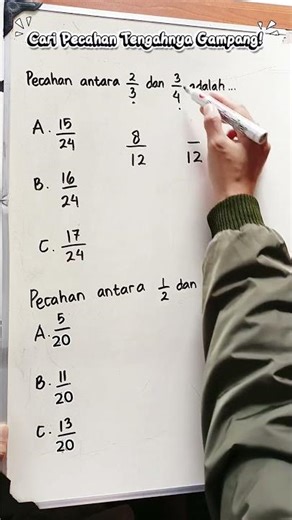 Cari Pecahan Tengahnya Gampang!
Pecahan antara 2/3 dan 3/4 adalah...
A. 15/24
8/12 /12
B. 16/24
C. 17/24
Pecahan antara 1/2 dan
A. 5/20
B. 11/20
C. 13/20